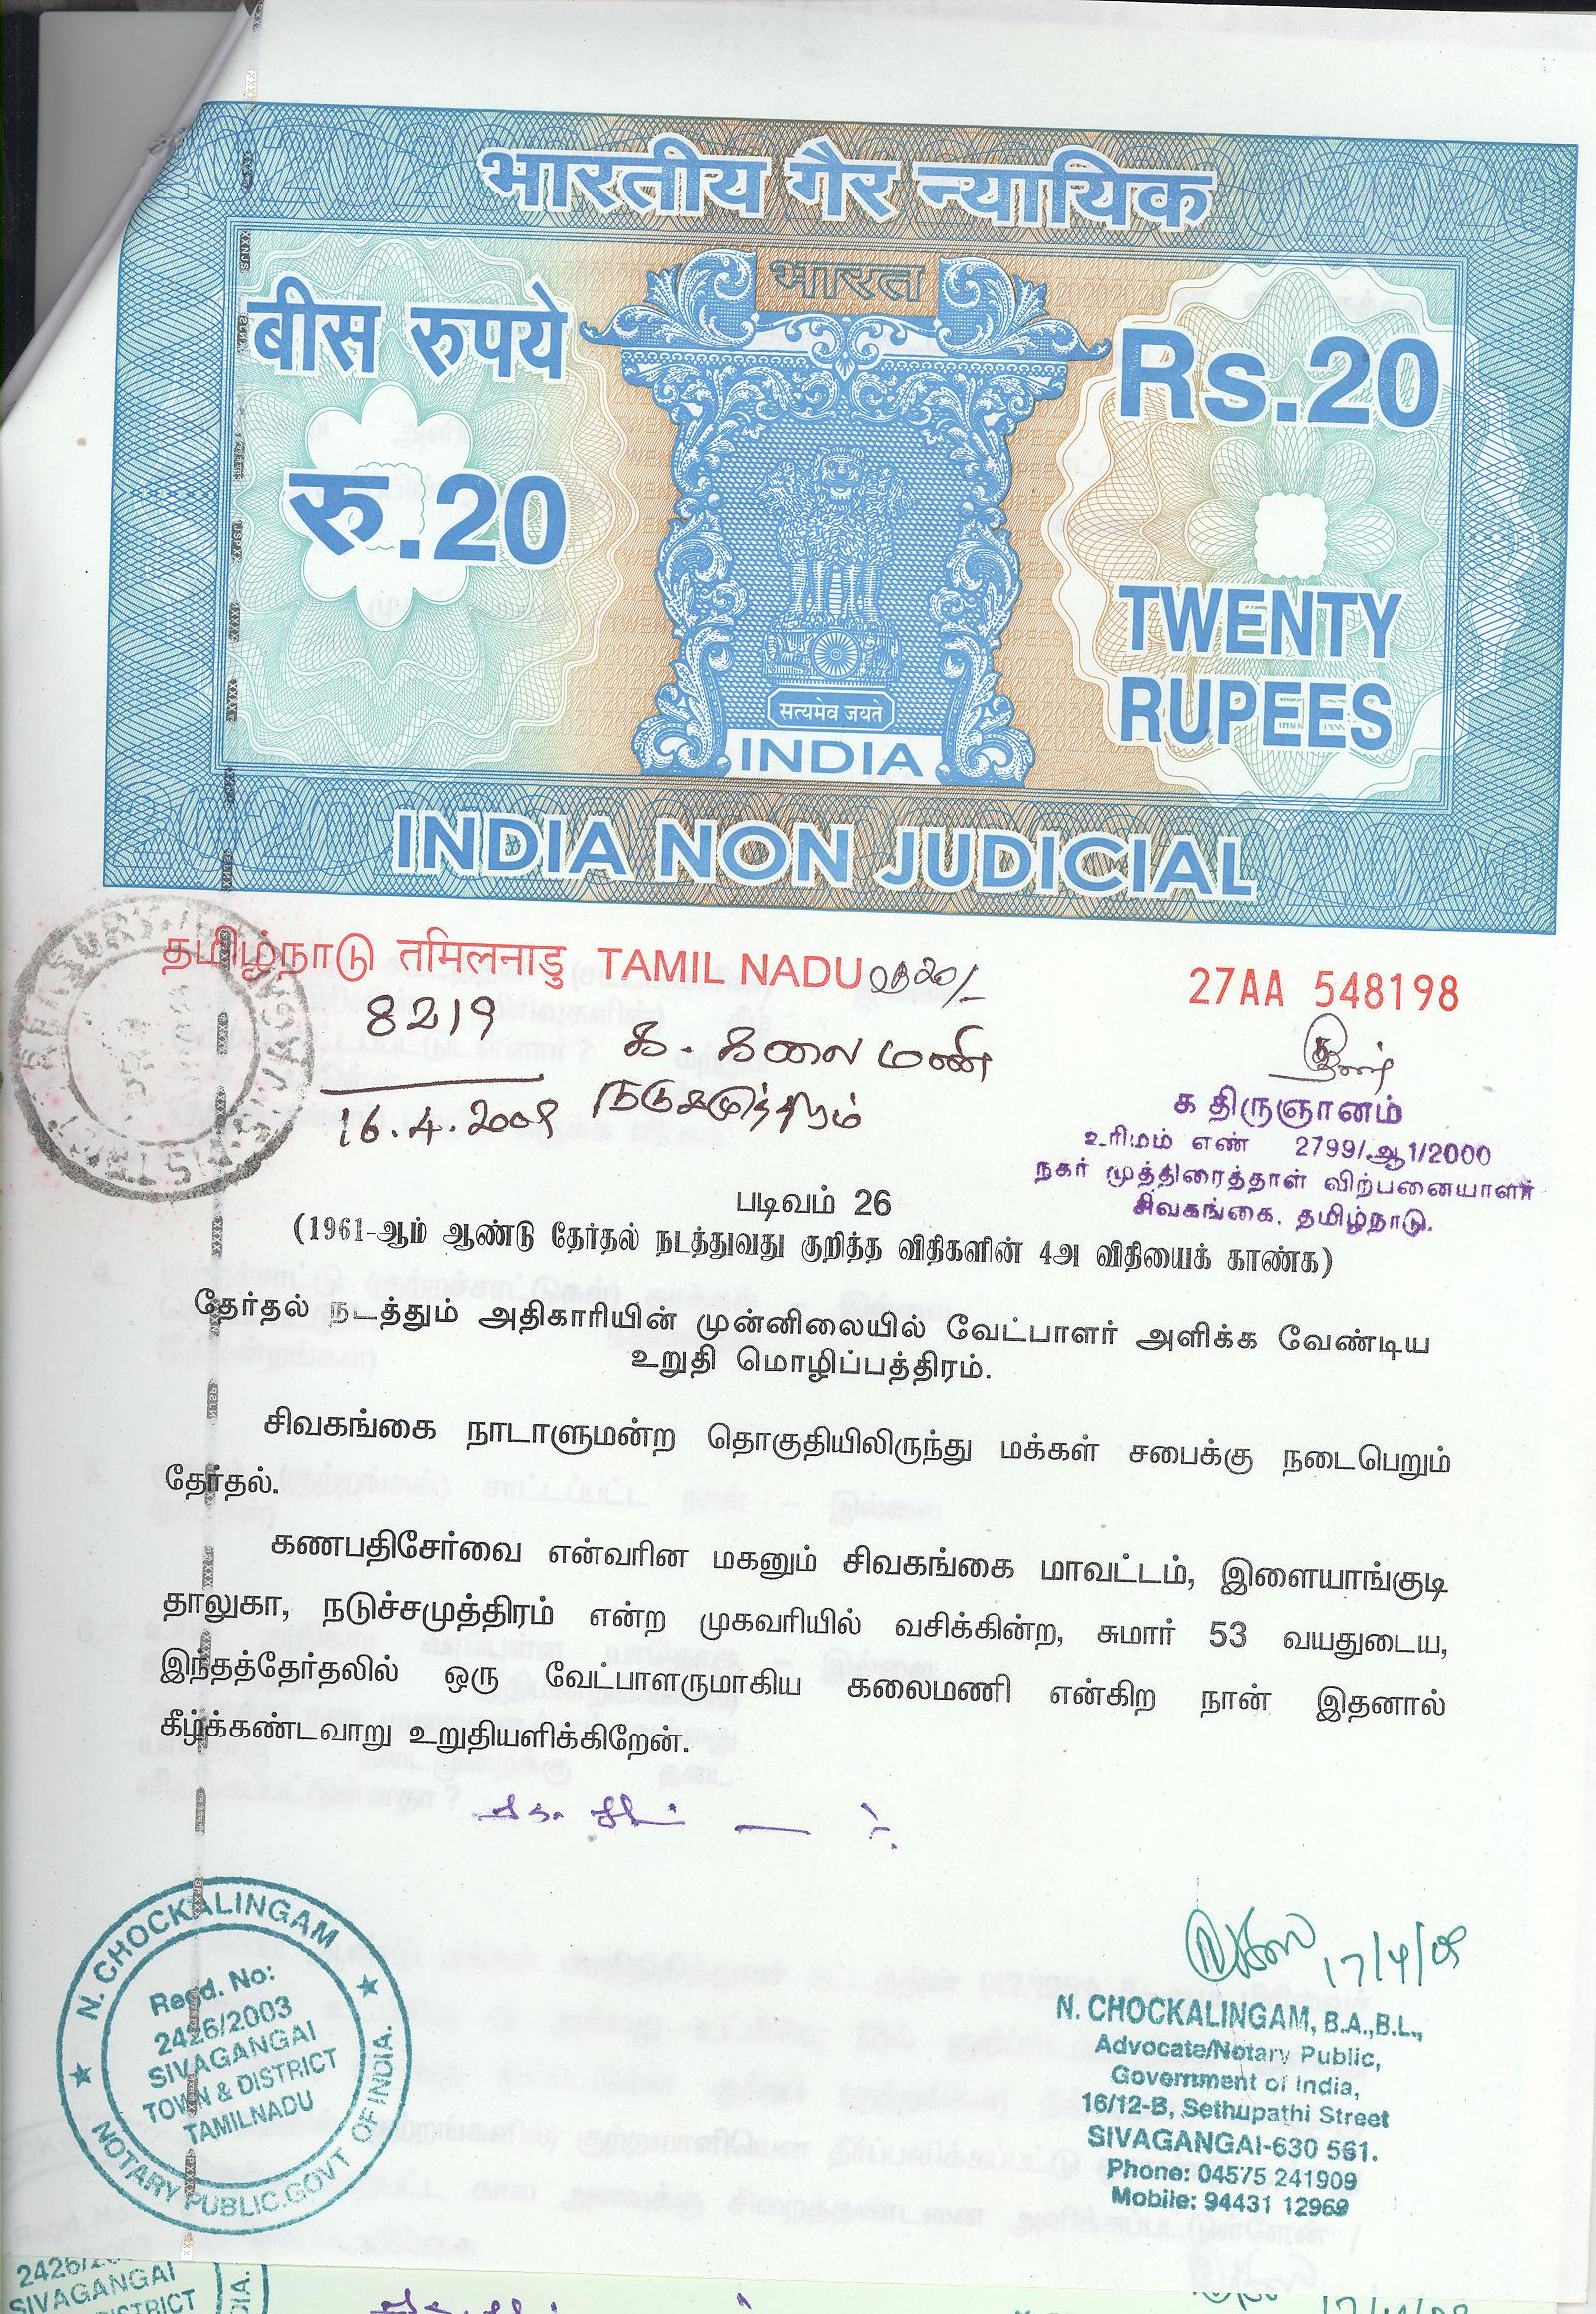 भारतीय गैर न्यायिक
भारत
बीस रुपये
Rs.20
रु.20
TWENTY
RUPEES
सत्यमेव जयते
INDIA
INDIA NON JUDICIAL
தமிழ்நாடு तमिलनाडु TAMIL NADU
27AA 548198
8219
க. கலைமணி
16.4.2009
க திருஞானம்
உரிமம் எண் 2799/ஆ1/2000
நகர் முத்திரைத்தாள் விற்பனையாளர்
சிவகங்கை. தமிழ்நாடு.
படிவம் 26
(1961-ஆம் ஆண்டு தேர்தல் நடத்துவது குறித்த விதிகளின் 4அ விதியைக் காண்க)
தேர்தல் நடத்தும் அதிகாரியின் முன்னிலையில் வேட்பாளர் அளிக்க வேண்டிய
உறுதி மொழிப்பத்திரம்.
சிவகங்கை நாடாளுமன்ற தொகுதியிலிருந்து மக்கள் சபைக்கு நடைபெறும்
தேர்தல்.
கணபதிசேர்வை என்வரின மகனும் சிவகங்கை மாவட்டம், இளையாங்குடி
தாலுகா, நடுச்சமுத்திரம் என்ற முகவரியில் வசிக்கின்ற, சுமார் 53 வயதுடைய,
இந்தத்தேர்தலில் ஒரு வேட்பாளருமாகிய கலைமணி என்கிற நான் இதனால்
கீழ்க்கண்டவாறு உறுதியளிக்கிறேன்.
17/4/09
N. CHOCKALINGAM
Regd. No:
2426/2003
SIVAGANGAI
TOWN & DISTRICT
TAMILNADU
NOTARY PUBLIC.GOVT OF INDIA.
N. CHOCKALINGAM, B.A.,B.L.,
Advocate/Notary Public,
Government of India,
16/12-B, Sethupathi Street
SIVAGANGAI-630 561.
Phone: 04575 241909
Mobile: 94431 12969
SIVAGANGAI